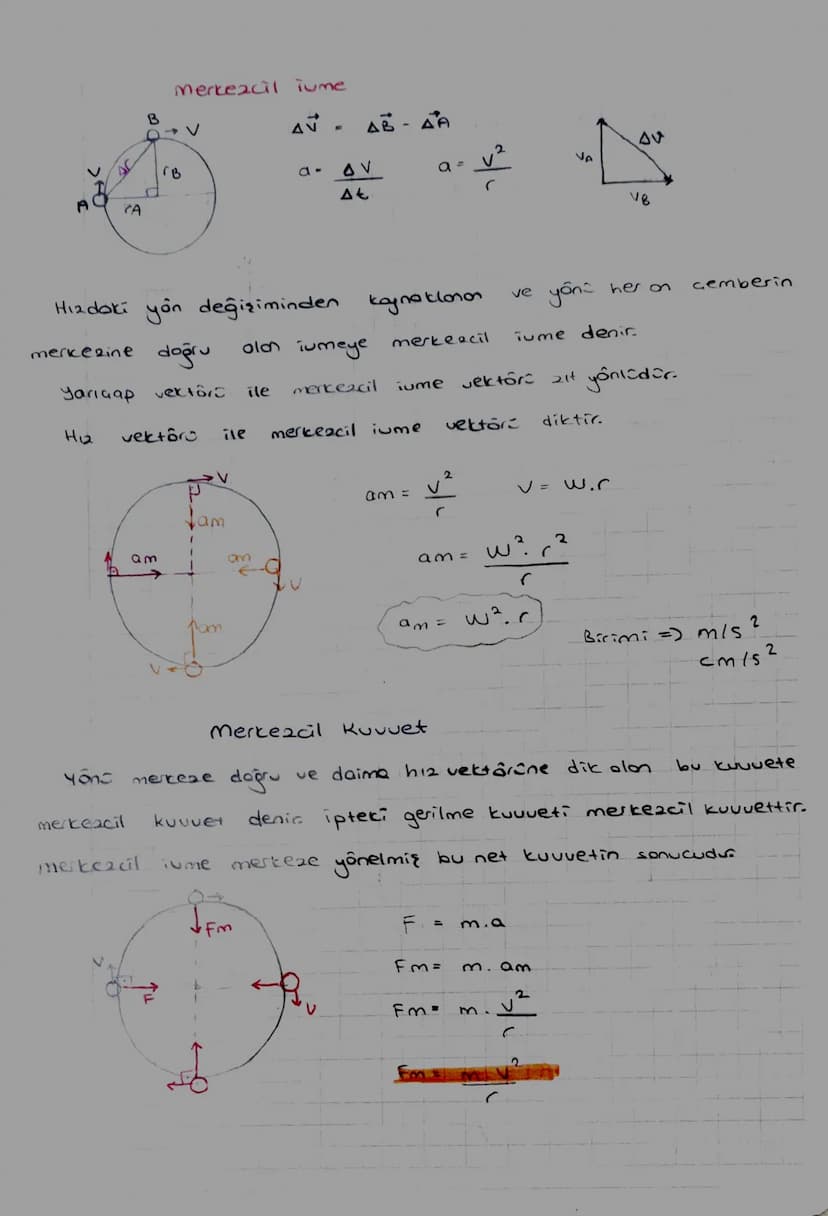 Merkezcil ivme
B
V
ΔV⃗ = ΔB⃗ - ΔA⃗
ΔV
VA
VB
V
Δr
rB
a = ΔV/Δt
a = V²/r
A
rA
Hızdaki yön değişiminden kaynaklanan ve yönü her an çemberin
merkezine doğru olan ivmeye merkezcil ivme denir.
Yarıçap vektörü ile merkezcil ivme vektörü zıt yönlüdür.
Hız vektörü ile merkezcil ivme vektörü diktir.
V
am
am
am
V
am
V
am = V²/r
V = W.r
am = W².r²/r
am = W².r
Birimi => m/s²
cm/s²
Merkezcil Kuvvet
Yönü merkeze doğru ve daima hız vektörüne dik olan bu kuvvete
merkezcil kuvvet denir. İpteki gerilme kuvveti merkezcil kuvvettir.
Merkezcil ivme merkeze yönelmiş bu net kuvvetin sonucudur.
Fm
V
F
V
F = m.a
Fm = m.am
Fm = m.V²/r
Fm = m.V²/r